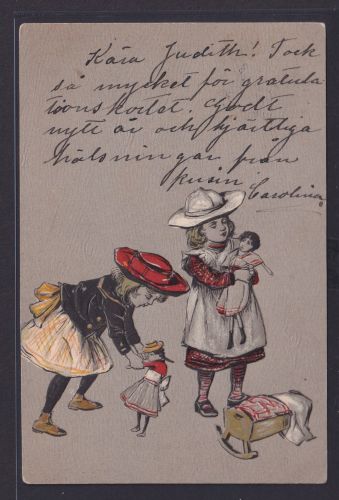 Kära Judith! Tack
så mycket för gratula
tionskortet. Godt
nytt år och hjärtliga
hälsningar från
kusin Carolina